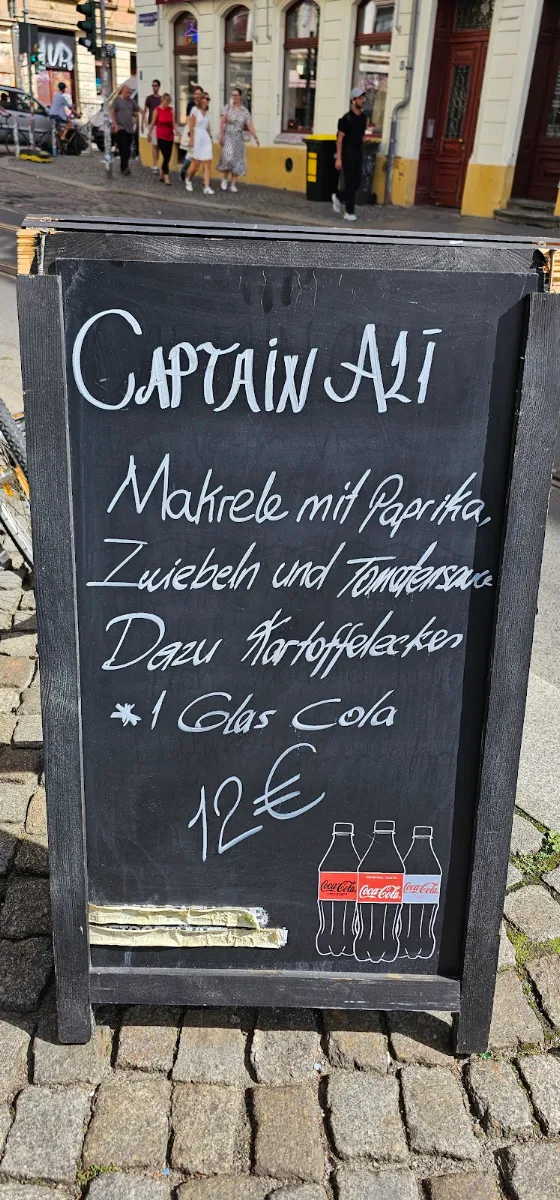 CAPTAIN ALI
Makrele mit Paprika,
Zwiebeln und Tomatensauce
Dazu Kartoffelecken
*1 Glas Cola
12€
Coca-Cola Coca-Cola Coca-Cola